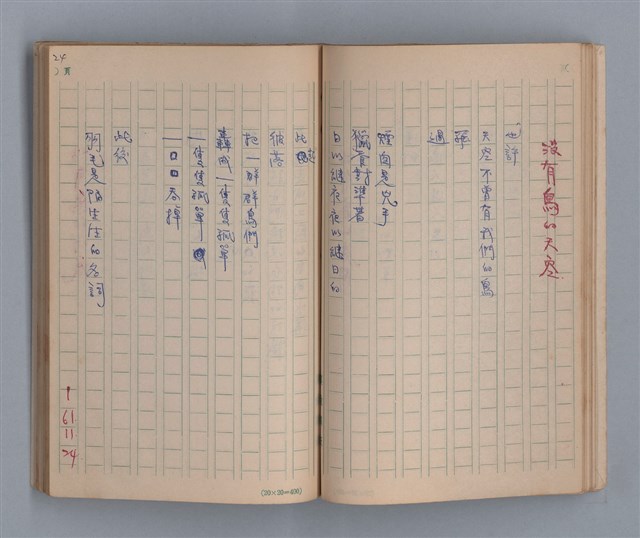 沒有鳥的天空
也許
天空不曾有我們的鳥
飛
過
煙囪是兇手
獵食對準著
日以繼夜夜以繼日的
此起
彼落
把一群群鳥們
轟成一隻隻孤單
一隻隻孤單
一口口吞掉
此後
羽毛是陌生的名詞
61
11
24
24
頁
(20×20=400)